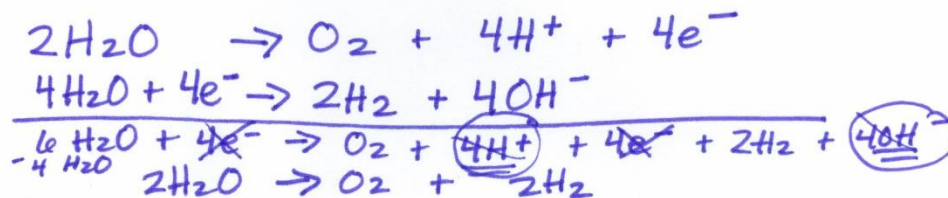 2H₂O → O₂ + 4H⁺ + 4e⁻
4H₂O + 4e⁻ → 2H₂ + 4OH⁻
6 H₂O + 4e⁻ → O₂ + 4H⁺ + 4e⁻ + 2H₂ + 4OH⁻
-4 H₂O
2H₂O → O₂ + 2H₂